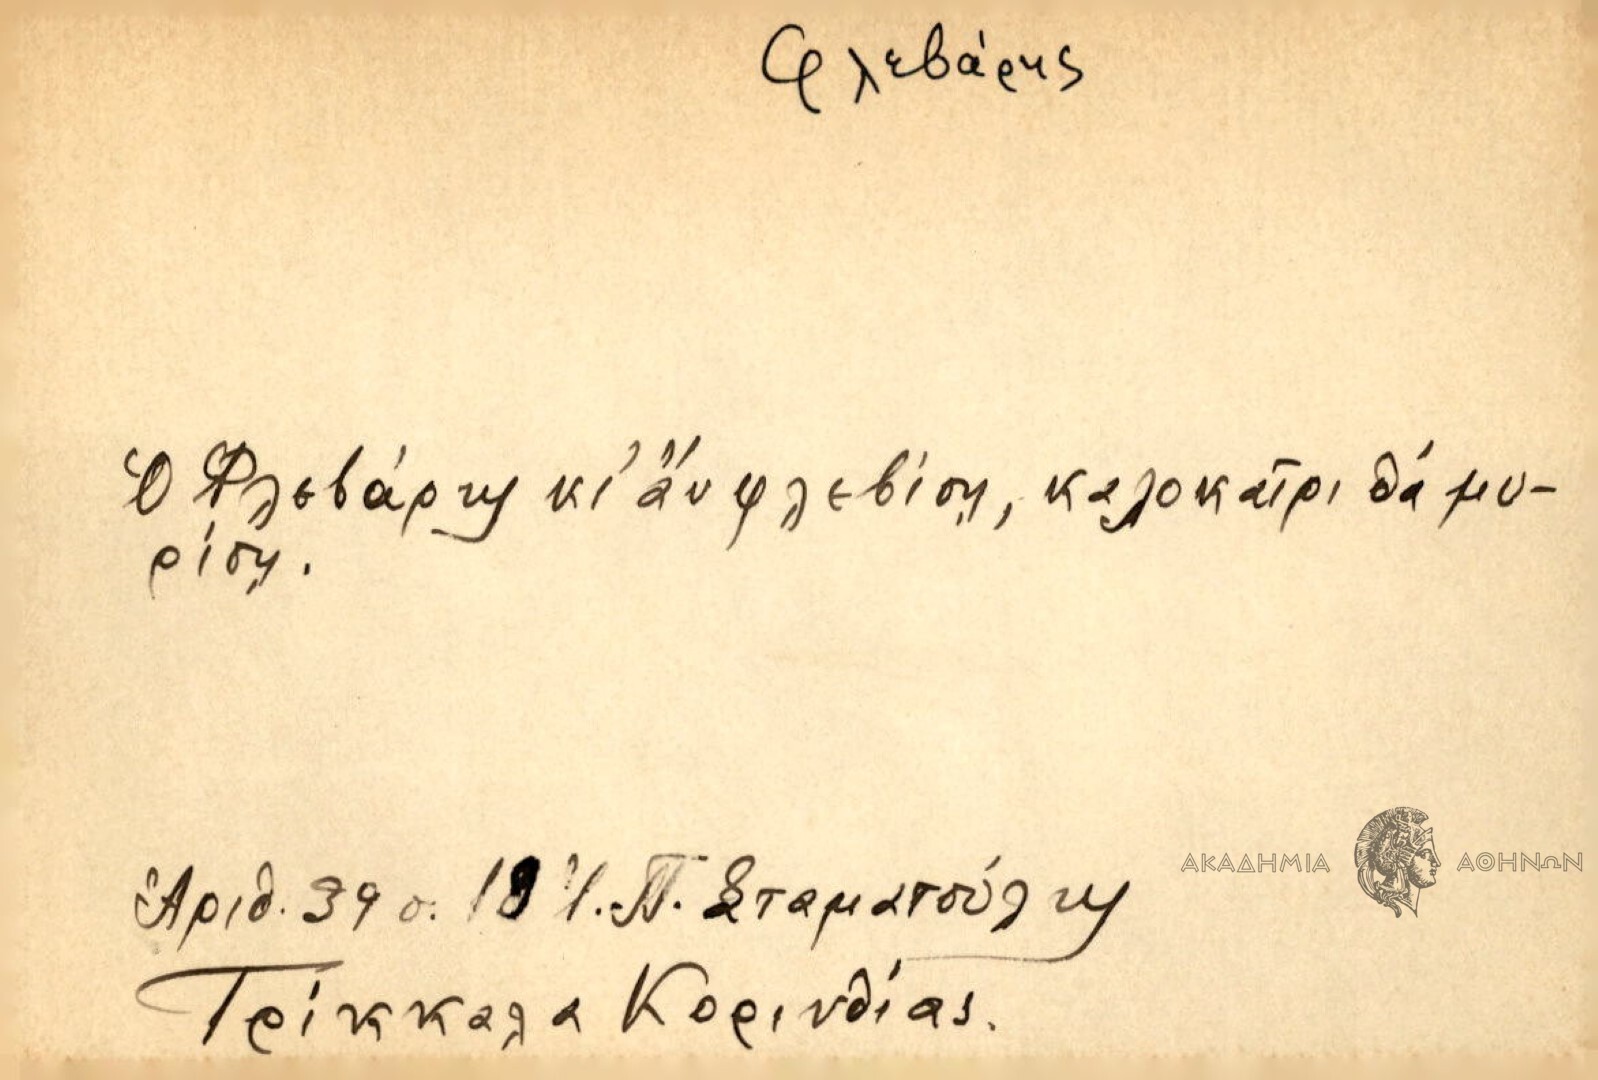 Φλεβάρης
Ὁ Φλεβάρης κι' ἂν φλεβίσῃ, καλοκαῖρι θά μυ-
ρίσῃ.
Ἀριθ. 39 σ. 18 Ἰ. Π. Σταματούλης
ΑΚΑΔΗΜΙΑ ΑΘΗΝΩΝ
Τρίκκαλα Κορινθίας.